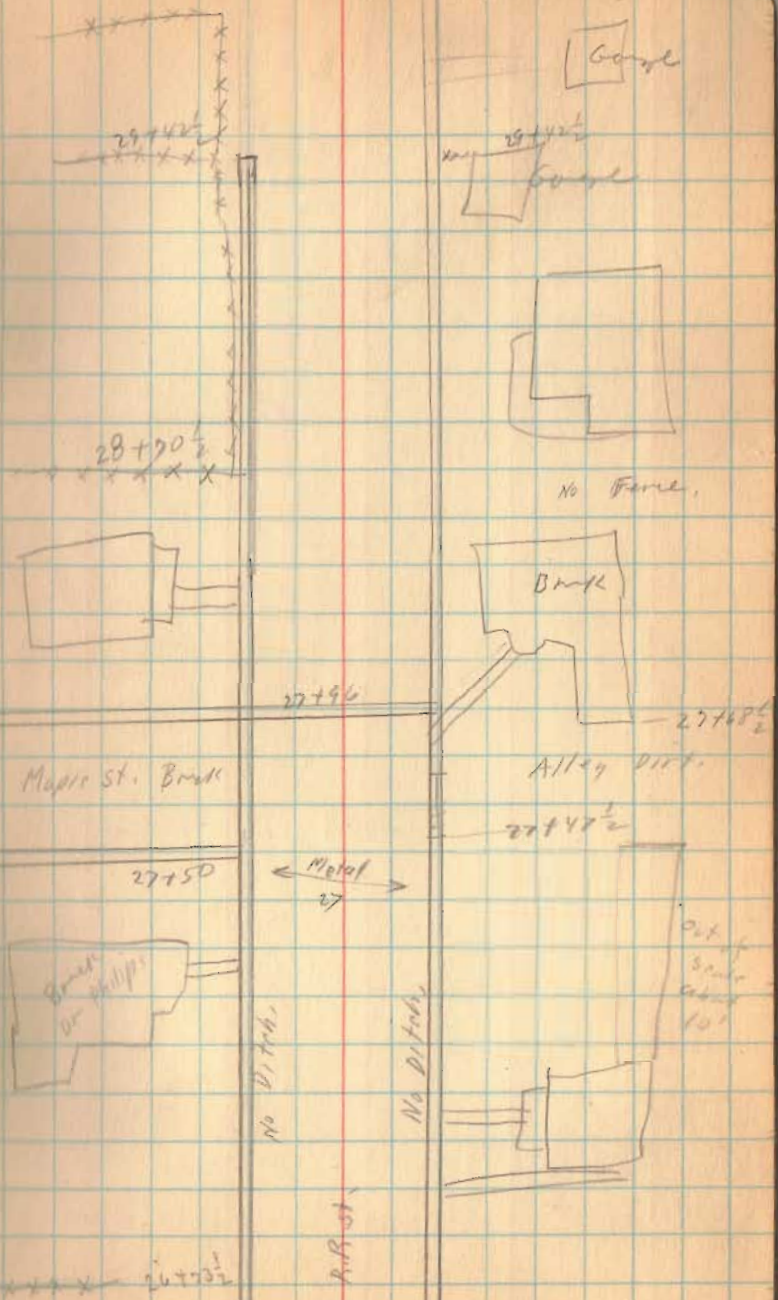 29+42½
29+42½
28+90½
No Fence.
27+96
27+68½
Maple St. Brick
Alley Dirt.
27+47½
27+50
Metal
27
Brick
Dr Philips
Out of
Scale
about
10'
No Ditch,
No Ditch,
R.R. St.
26+73½